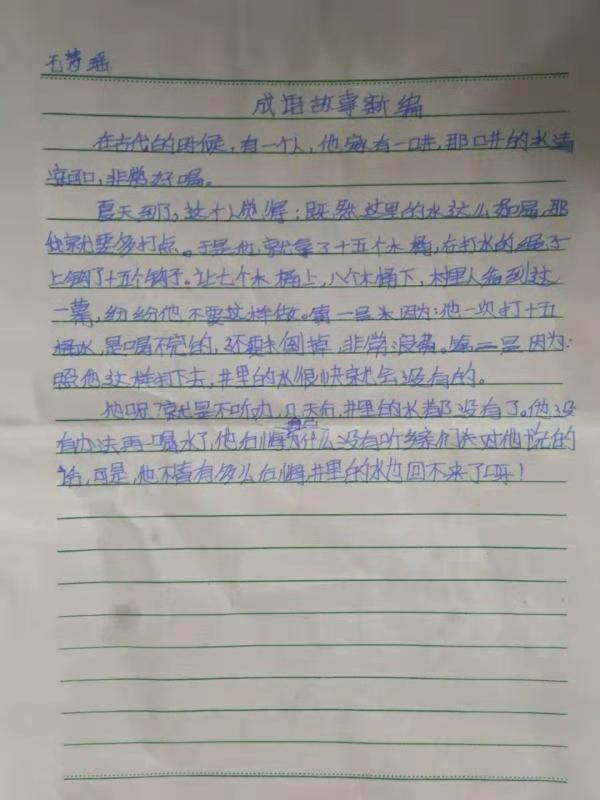 成语故事新编
在古代的时候,有一个人,他家有一口井,那口井的水清
凉可口,非常好喝。
夏天到了,这个人觉得:既然这里的水这么好喝,那
我就要多打点。于是他就拿了十五个水桶,在打水的绳子
上钩了十五个钩子。让七个水桶上,八个水桶下,村里人看到这
一幕,纷纷他不要这样做。第一是因为:他一次打十五
桶水,是喝不完的,还要倒掉,非常浪费。第二是因为:
照他这样打下去,井里的水很快就会没有的。
他呢?就是不听劝,几天后,井里的水都没有了。他没
有办法再喝水了,他后悔为什么没有听乡亲们对他说的
话,可是,他不管有多么后悔,井里的水也回不来了呀!